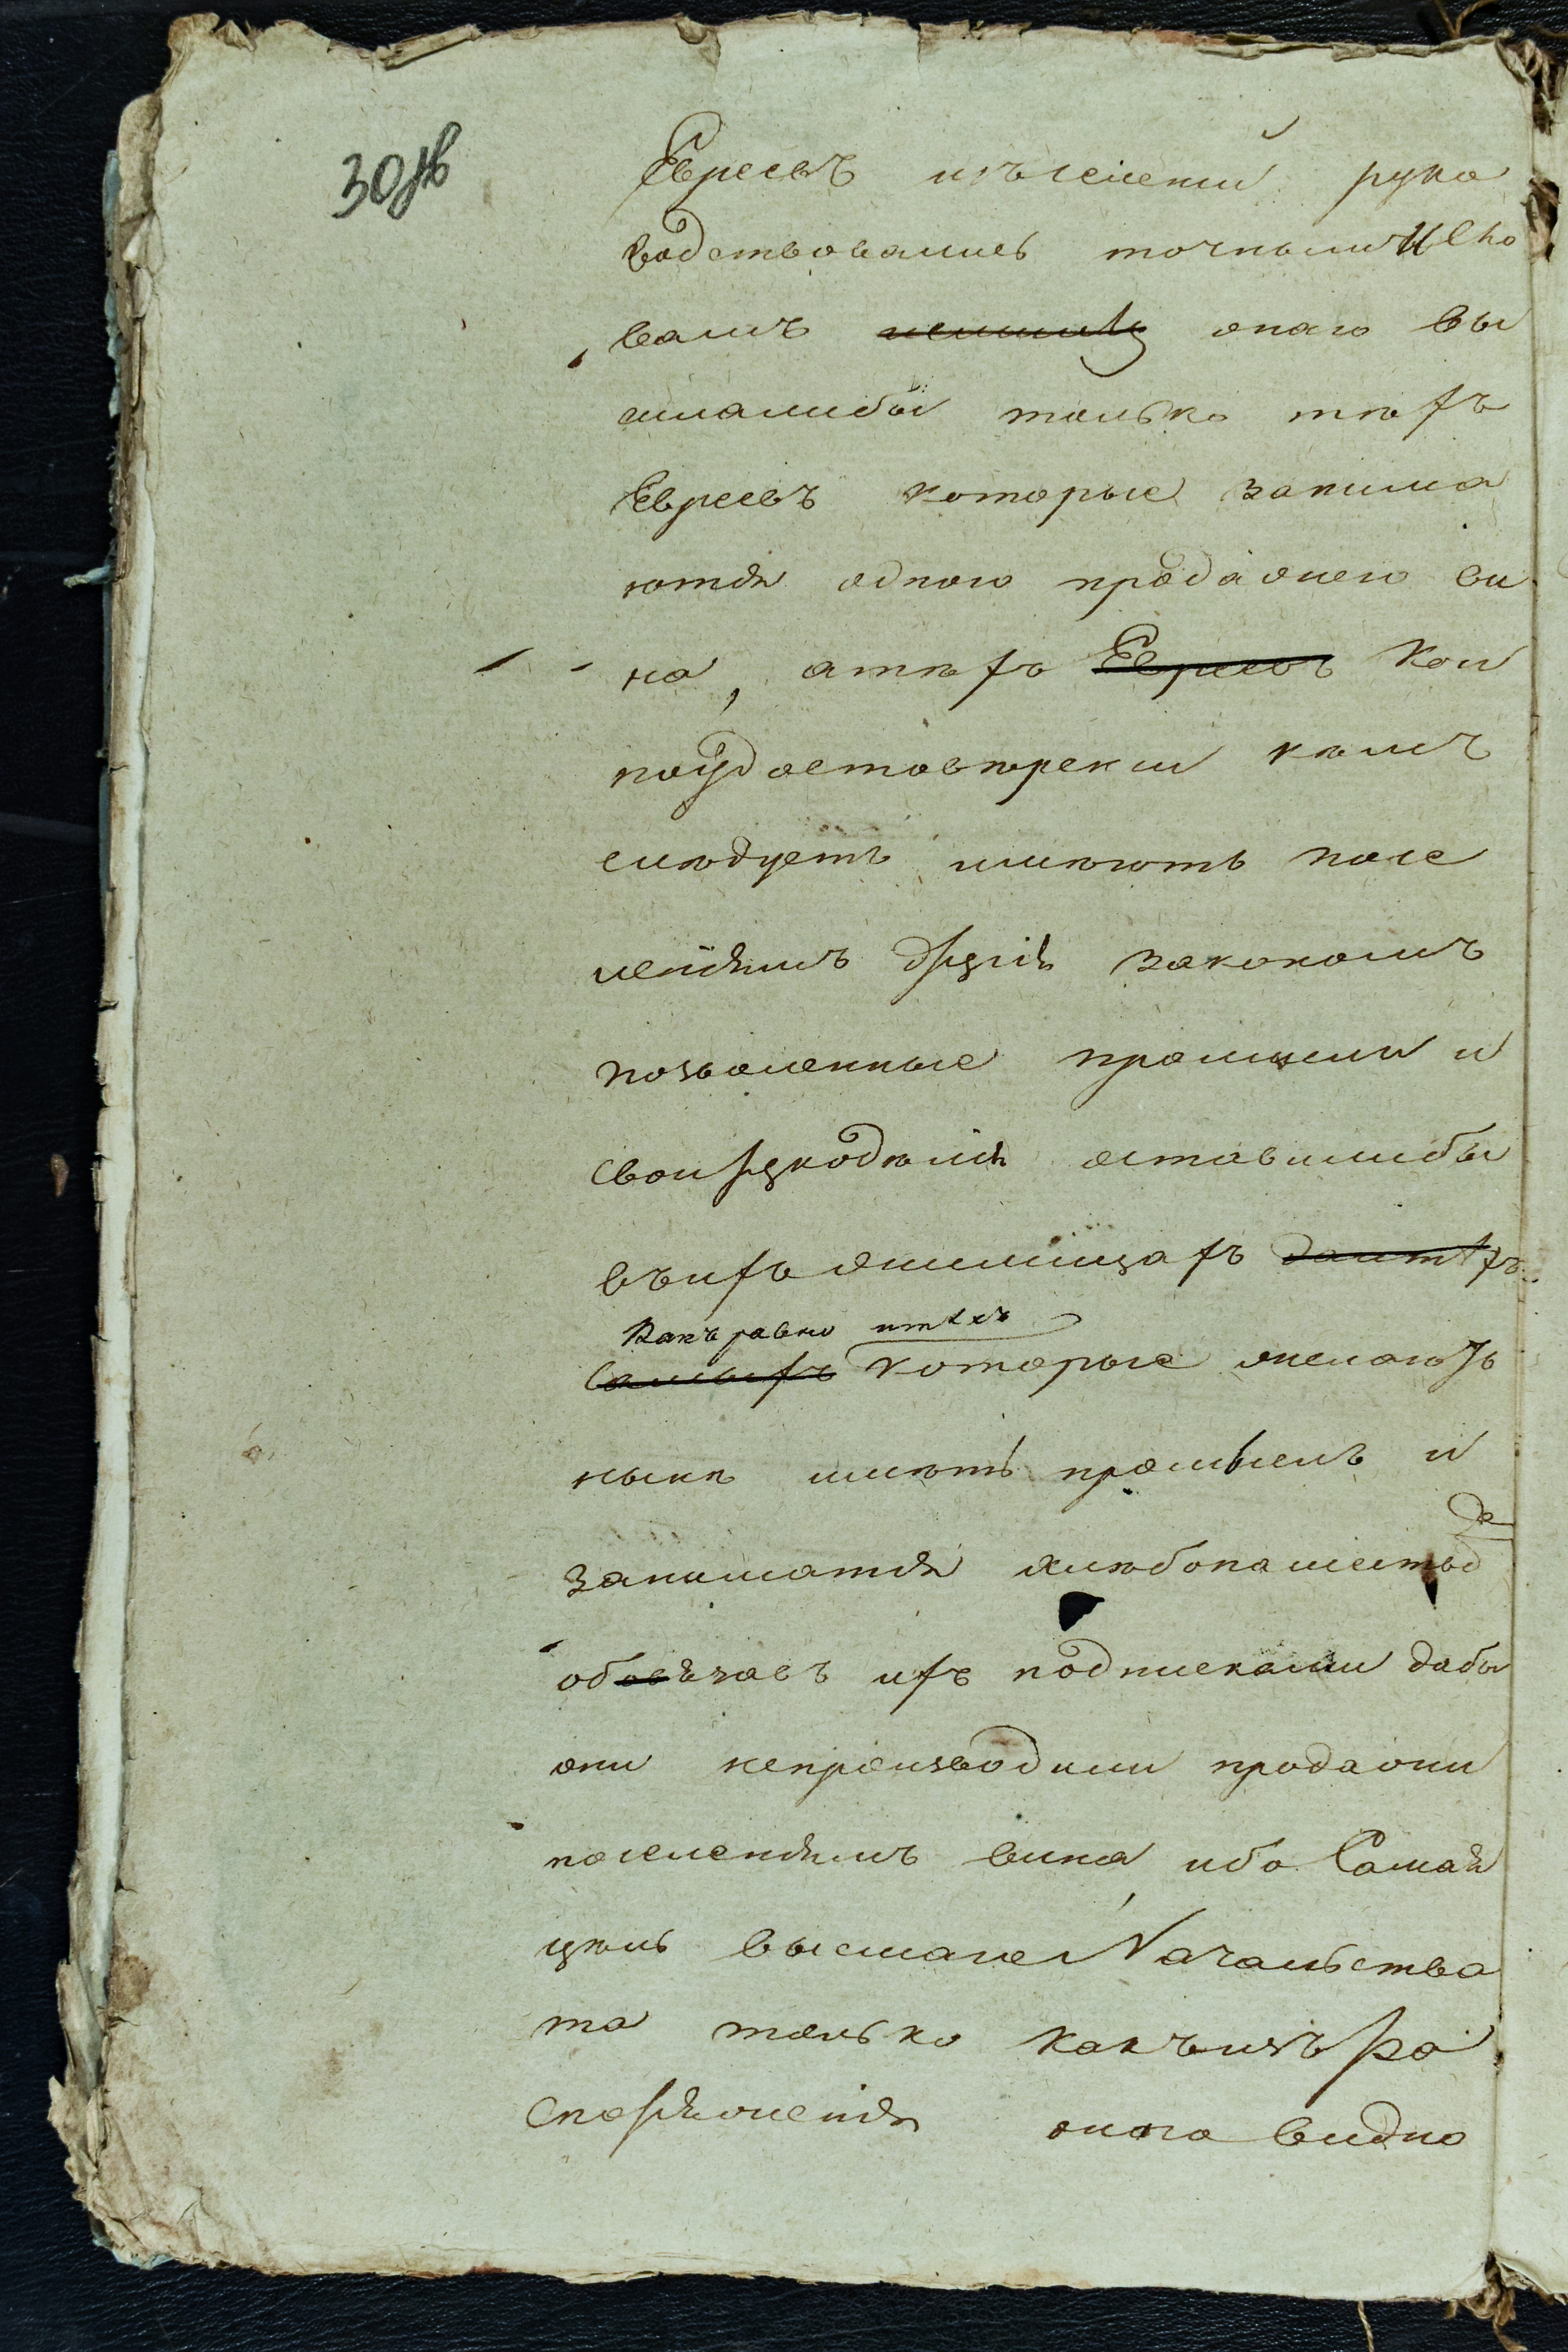 30об
Евреевъ изъ селеній руко
водствовались точными сло
вами онаго вы
сылалибы только тѣхъ
Евреевъ которые занима
ются одною продажею ви
на, а тѣхъ Евреевъ кои
по удостовѣренiи какъ
слѣдуетъ имѣютъ посе
ленiямъ другiя закономъ
позволенные промыслы и
свои рукодѣлiя оставилибы
въ ихъ жилищахъ
какъ равно и тѣхъ
самыхъ которые желаютъ
нынѣ имѣть промыслъ и
заниматся хлѣбопашество
обовязавъ ихъ подписками дабы
они непроизводили продажи
поселенiямъ вина, ибо Самая
цѣль высшаго Начальства
та только какъ изъ ра
споряженiя онаго видно